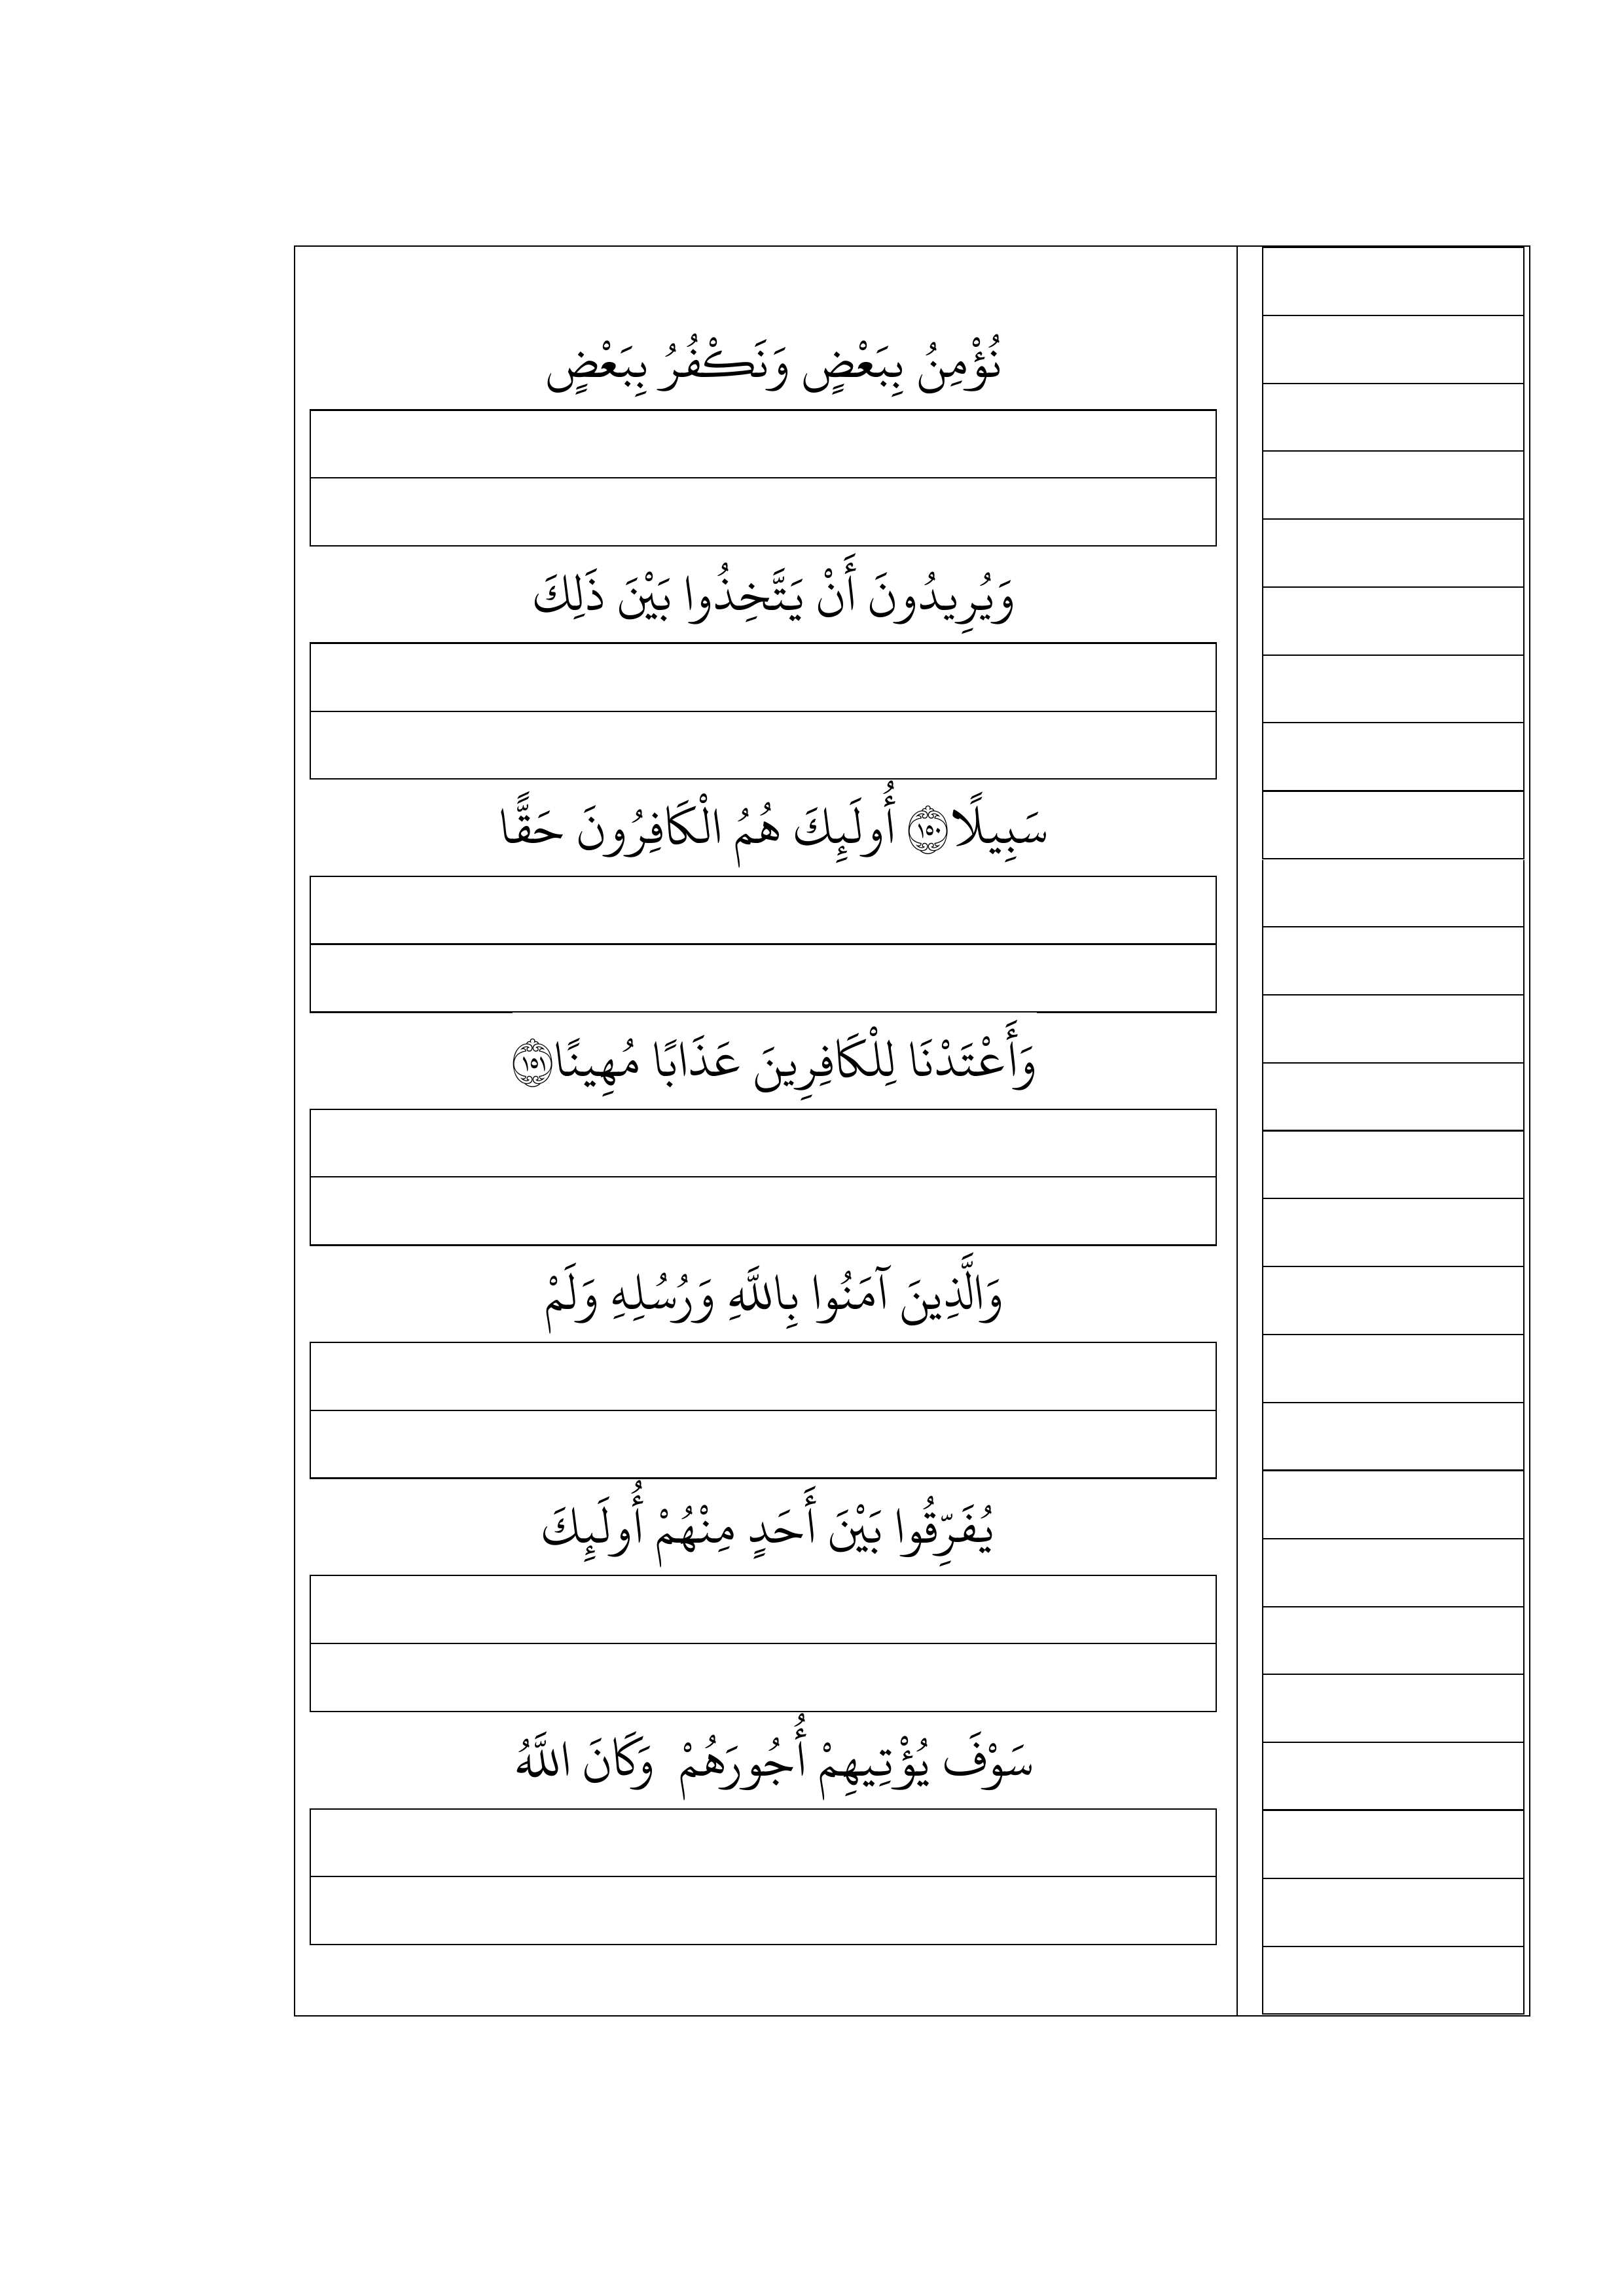 نُؤْمِنُ بِبَعْضٍ وَنَكْفُرُ بِبَعْضٍ
وَيُرِيدُونَ أَنْ يَتَّخِذُوا بَيْنَ ذَلِكَ
سَبِيلًا ﴿١٥٠﴾ أُولَئِكَ هُمُ الْكَافِرُونَ حَقًّا
وَأَعْتَدْنَا لِلْكَافِرِينَ عَذَابًا مُهِينًا ﴿١٥١﴾
وَالَّذِينَ آمَنُوا بِاللَّهِ وَرُسُلِهِ وَلَمْ
يُفَرِّقُوا بَيْنَ أَحَدٍ مِنْهُمْ أُولَئِكَ
سَوْفَ يُؤْتِيهِمْ أُجُورَهُمْ وَكَانَ اللَّهُ